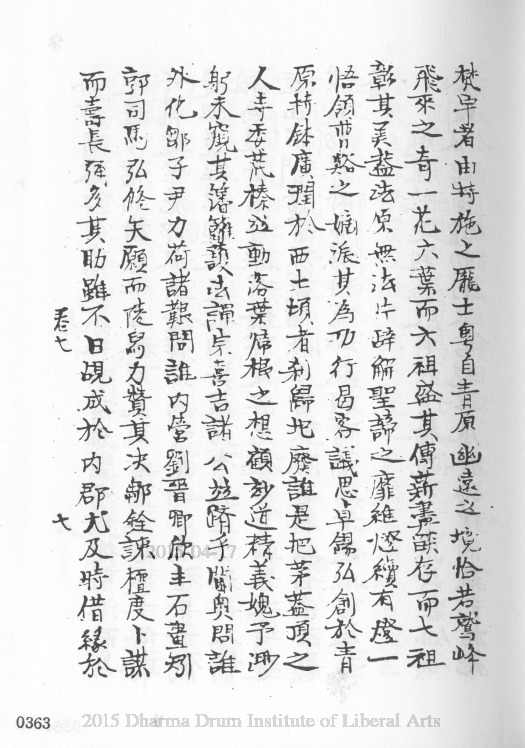 梵宇者由特施之龐士粵自青原幽遠之境恰若鷲峰
飛來之奇一花六葉而六祖盛其傳薪盡燄存而七祖
彰其美蓋法原無法片辭解聖諦之靡維燈續有燈一
悟領曹谿之嫡派其為功行曷容議思卓錫弘創於青
原持鉢廣潤於西土頃者剎歸圮廢誰是把茅蓋頂之
人寺委荒榛竝動落葉歸根之想顧玅道精義媿予渺
躬未窺其藩籬談法謂宗喜吉諸公竝躋乎閫奧問誰
外化鄒子尹力荷諸艱問誰內營劉晋卿欣主石畫矧
郭司馬弘修矢願而陵舄力贊其决鄒銓諫檀度卜謀
而壽長孺多其助雖不日覬成於內郡尤及時借緣於
卷七 七
2015/04/17
0363 2015 Dharma Drum Institute of Liberal Arts